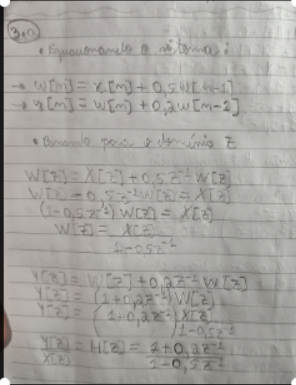 3.a
• Equacionando o sistema:
→ w[n] = x[n] + 0,5w[n-1]
→ y[n] = w[n] + 0,2w[n-1]
• Passando para o domínio Z
W[z] = X[z] + 0,5z⁻¹ W[z]
W[z] - 0,5z⁻¹W[z] = X[z]
(1-0,5z⁻¹) W[z] = X[z]
W[z] = X[z]
1-0,5z⁻¹
Y[z] = W[z] + 0,2z⁻¹ W[z]
Y[z] = (1+0,2z⁻¹)W[z]
Y[z] = (1+0,2z⁻¹) X[z]
1-0,5z⁻¹
Y[z] = H[z] = 1+0,2z⁻¹
X[z] 1-0,5z⁻¹